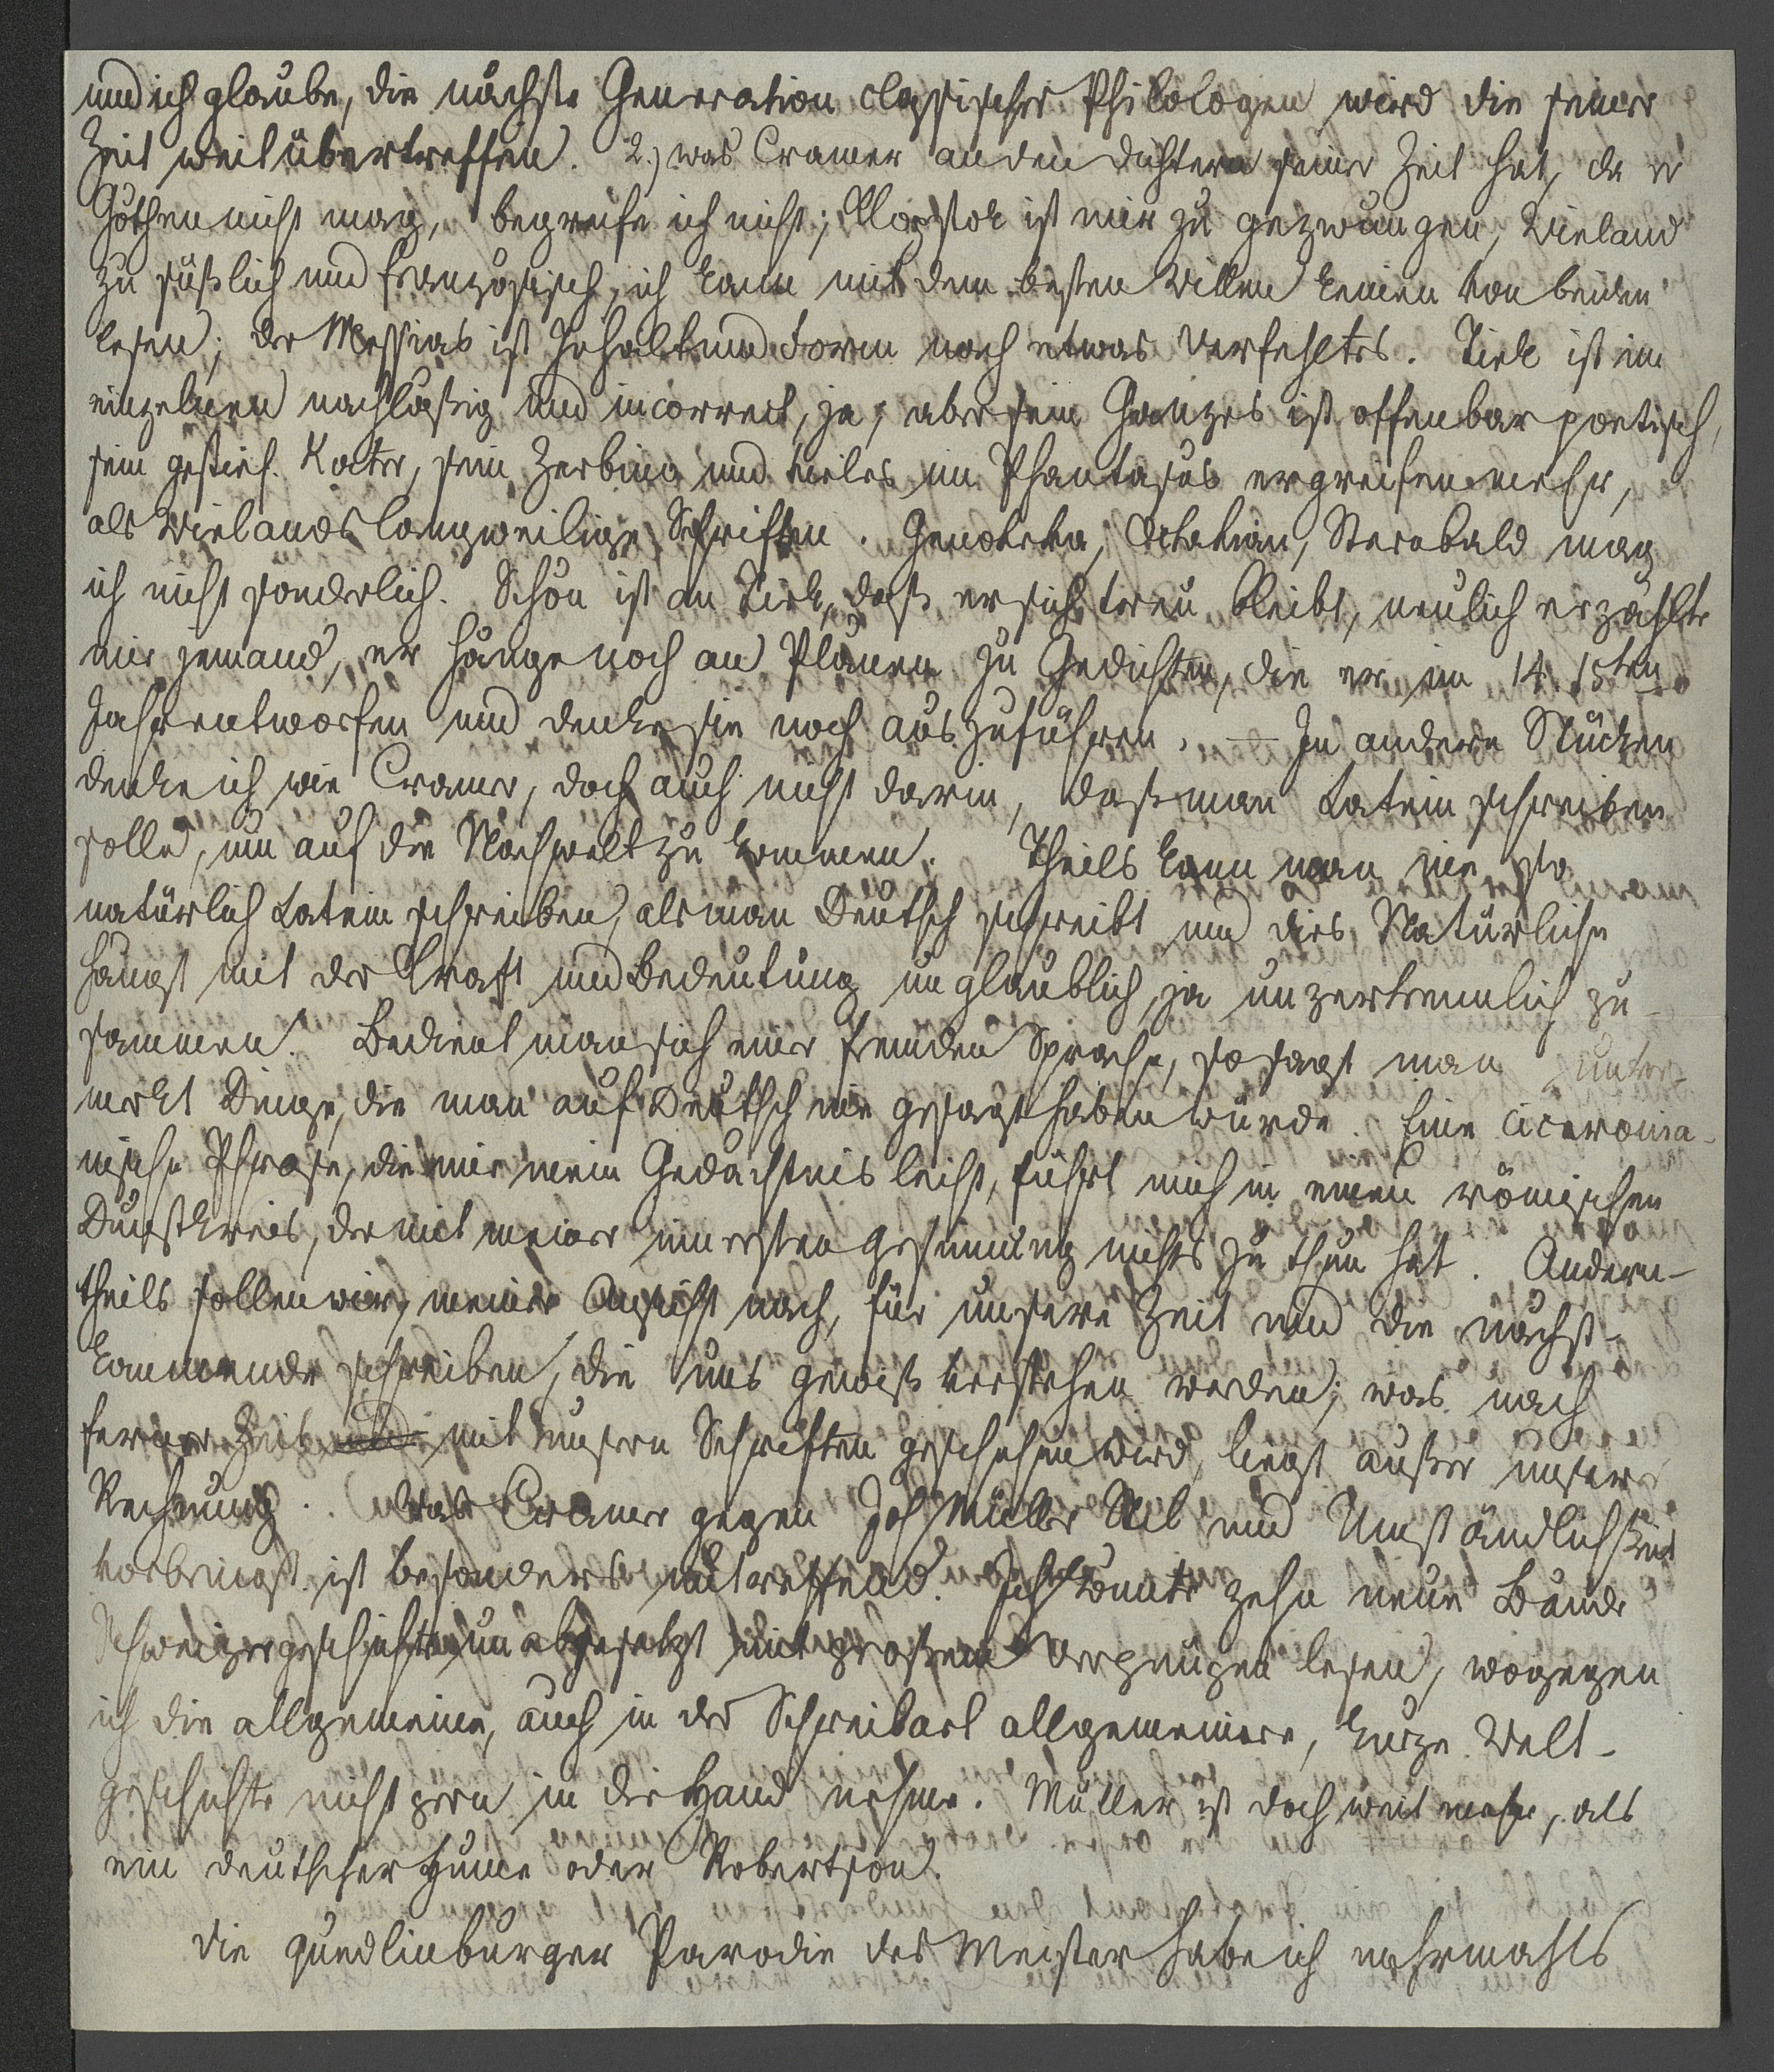 und ich glaube, die nächste Generation classischer Philologen wird die seiner
Zeit weit übertreffen. 2.) was Cramer an den Dichtern seiner Zeit hat, da er
Göthen nicht mag, begreife ich nicht; Klopstok ist mir zu gezwungen, Wieland
zu süßlich und französisch, ich kann mit dem besten Willen keinen von beiden
lesen; der Messias ist Inhalt und Form nach etwas verfehltes. Tiek ist im
einzelnen nachläßig und incorrect, ja, aber sein Ganzes ist offenbar poetisch,
sein gestief. Kater, sein Zerbino und vieles im Phantasus ergreifen mehr,
als Wielands langweilige Schriften. Genoveva, Octavian, Sternbald mag
ich nicht sonderlich. Schön ist an Tiek, daß er sich treu bleibt, neulich erzählte
mir jemand, er hänge noch an Plänen zu Gedichten, die er im 14. 15ten
Jahr entworfen und denke sie noch auszuführen. — In andern Stücken
denke ich wie Cramer, doch auch nicht darin, daß man Latein schreiben
solle, um auf die Nachwelt zu kommen. Theils kann man nie so
natürlich Latein schreiben, als man Deutsch schreibt und dies Natürliche
hängt mit der Kraft und Bedeutung unglaublich, ja unzertrennlich zu-
sammen. Bedient man sich einer fremden Sprache, so sagt man unver-
merkt Dinge, die man auf Deutsch nie gesagt haben würde. Eine ciceronia-
nische Phrase, die mir mein Gedächtnis leiht, führt mich in einen römischen
Dunstkreis, der mit meiner innersten Gesinnung nichts zu thun hat. Andern-
theils sollen wir, meiner Ansicht nach, für unsere Zeit und die nächst-
kommende schreiben, die uns gewiß verstehen werden; was nach
ferner Zeit mit unsern Schriften geschehen wird, liegt außer unserer
Rechnung. Was Cramer gegen Joh Müllers Stil und Umständlichkeit
vorbringt, ist besonders untreffend. Ich könnte zehn neue Bände
Schweizergeschichte unabgesetzt mit großem Vergnügen lesen, wogegen
ich die allgemeine, auch in der Schreibart allgemeinere, kurze Welt-
geschichte nicht gern in die Hand nehme. Müller ist doch weit mehr, als
ein deutscher Hume oder Robertson.
Die quedlinburger Parodie des Meister habe ich mehrmahls